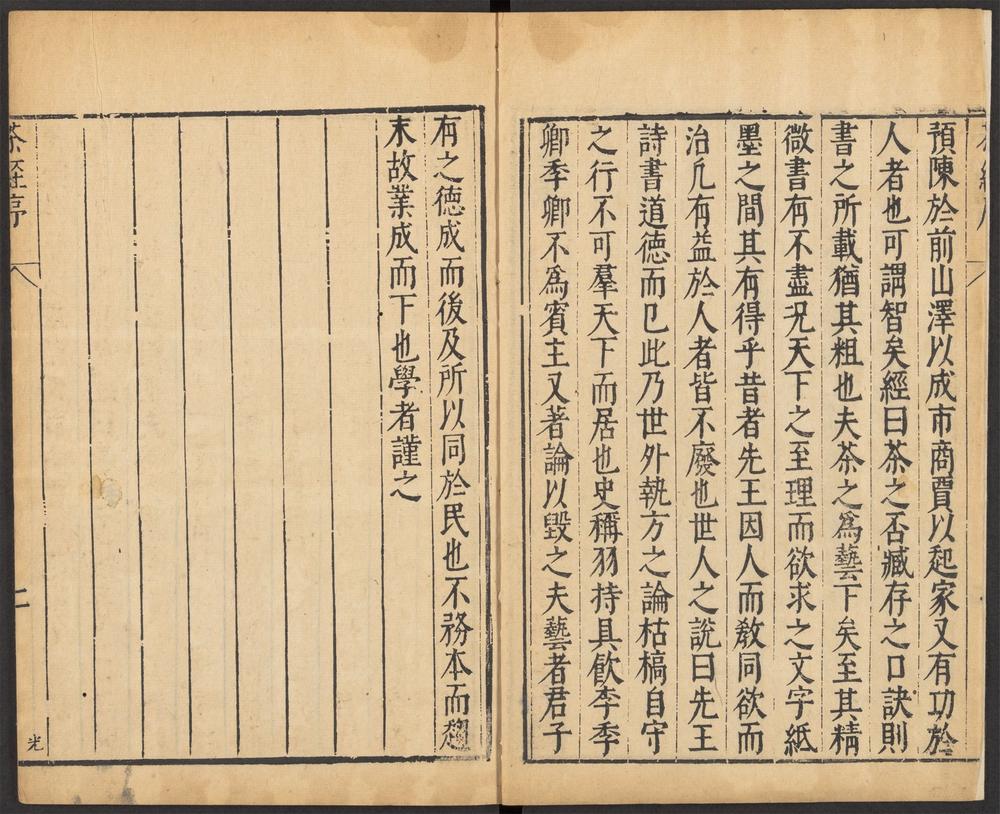 預陳於前山澤以成市商賈以起家又有功於
人者也可謂智矣經曰茶之否臧存之口訣則
書之所載猶其粗也夫茶之爲藝下矣至其精
微書有不盡况天下之至理而欲求之文字紙
墨之間其有得乎昔者先王因人而敎同欲而
治凢有益於人者皆不廢也世人之說曰先王
詩書道德而已此乃世外執方之論枯槁自守
之行不可羣天下而居也史稱羽持具飮李季
卿季卿不爲賓主又著論以毀之夫藝者君子
有之德成而後及所以同於民也不務本而趨
末故業成而下也學者謹之
茶經序
二
光